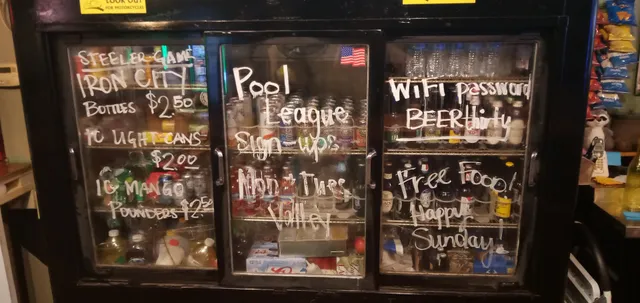 LOOK OUT
FOR MOTORCYCLES
STEELER GAME
IRON CITY
BOTTLES $2.50
IC LIGHT CANS
$2.00
IC MANGO
POUNDERS $2.50
Pool
League
Sign-ups
Mon + Tues
Valley
WiFi password
BEERthirty
Free Food!
Happy
Sunday!